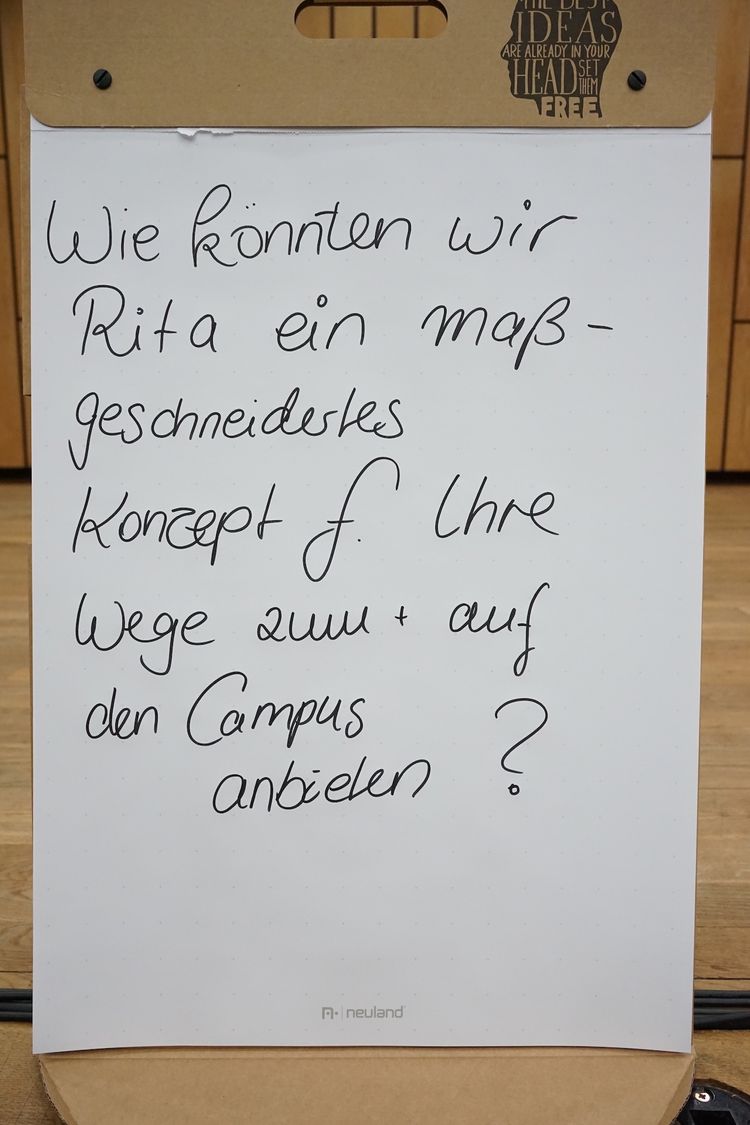 THE BEST
IDEAS
ARE ALREADY IN YOUR
HEAD SET
THEM
FREE
Wie könnten wir
Rita ein maß-
geschneidertes
Konzept f. Ihre
Wege zum + auf
den Campus
anbieten ?
neuland